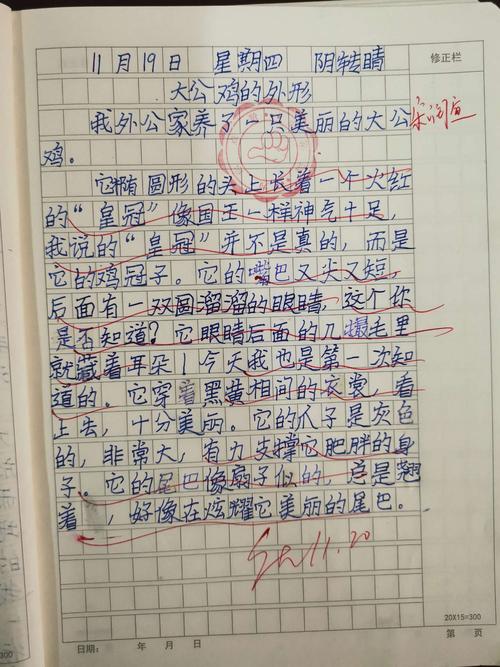 11月19日 星期四 阴转晴
修正栏
大公鸡的外形
我外公家养了一只美丽的大公
鸡。
它椭圆形的头上长着一个火红
的“皇冠”像国王一样神气十足，
我说的“皇冠”并不是真的，而是
它的鸡冠子。它的嘴巴又尖又短，
后面有一双圆溜溜的眼睛，这个你
是否知道？它眼睛后面的几撮毛里
就藏着耳朵！今天我也是第一次知
道的。它穿着黑黄相间的衣裳，看
上去，十分美丽。它的爪子是灰色
的，非常大，有力支撑它肥胖的身
子。它的尾巴像扇子似的，总是翘
着，好像在炫耀它美丽的尾巴。
11.20
20X15=300
日期： 年 月 日
第 页
300